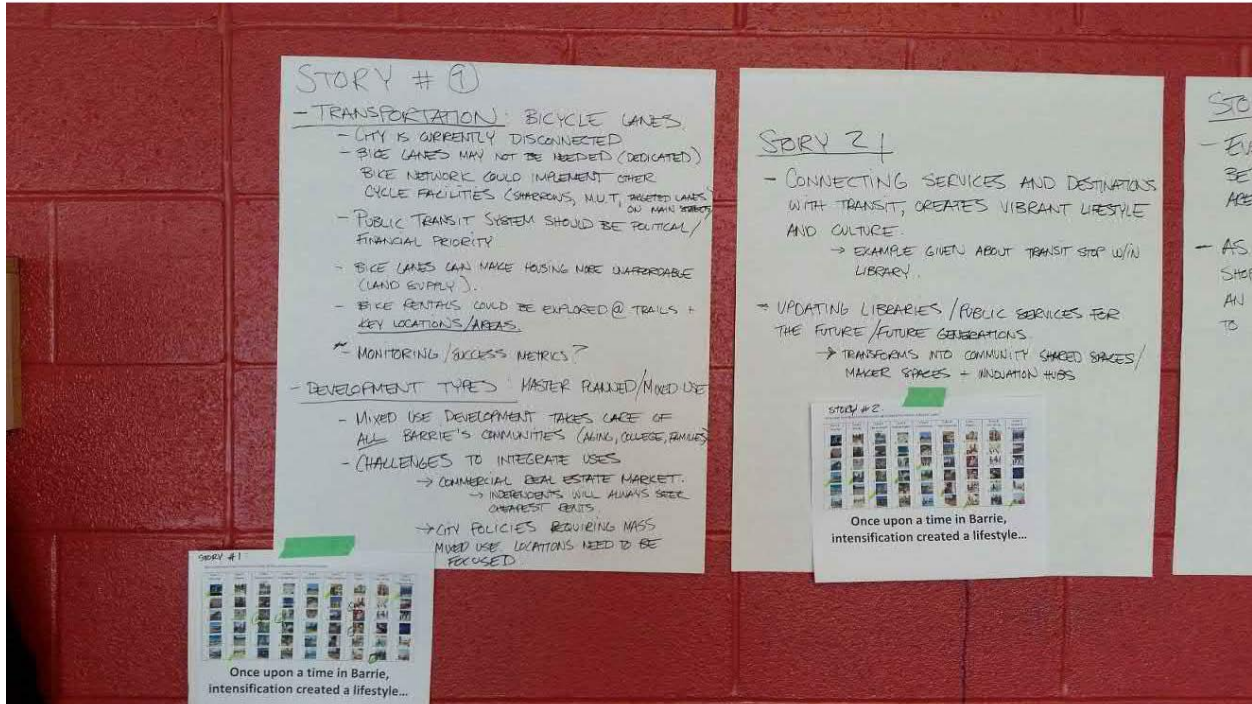 STORY # 1
- TRANSPORTATION: BICYCLE LANES
- CITY IS CURRENTLY DISCONNECTED
- BIKE LANES MAY NOT BE NEEDED (DEDICATED)
BIKE NETWORK COULD IMPLEMENT OTHER
CYCLE FACILITIES (SHARROWS, M.U.T, LANES
ON MAIN
- PUBLIC TRANSIT SYSTEM SHOULD BE POLITICAL/
FINANCIAL PRIORITY
- BIKE LANES CAN MAKE HOUSING MORE UNAFFORDABLE
(LAND SUPPLY).
- BIKE RENTALS COULD BE EXPLORED @ TRAILS +
KEY LOCATIONS/AREAS.
- MONITORING/SUCCESS METRICS?
- DEVELOPMENT TYPES: MASTER PLANNED/MIXED USE
- MIXED USE DEVELOPMENT TAKES CARE OF
ALL BARRIE'S COMMUNITIES (AGING, COLLEGE, FAMILIES)
- CHALLENGES TO INTEGRATE USES
→ COMMERCIAL REAL ESTATE MARKET.
→ INDEPENDENTS WILL ALWAYS SEEK
CHEAPEST RENTS.
→ CITY POLICIES REQUIRING MASS
MIXED USE LOCATIONS NEED TO BE
FOCUSED
STORY #1
Once upon a time in Barrie,
intensification created a lifestyle...
STORY 2
- CONNECTING SERVICES AND DESTINATIONS
WITH TRANSIT, CREATES VIBRANT LIFESTYLE
AND CULTURE.
→ EXAMPLE GIVEN ABOUT TRANSIT STOP W/IN
LIBRARY.
- UPDATING LIBRARIES/PUBLIC SERVICES FOR
THE FUTURE/FUTURE GENERATIONS.
→ TRANSFORMS INTO COMMUNITY SHARED SPACES/
MAKER SPACES + INNOVATION HUBS
STORY #2
Once upon a time in Barrie,
intensification created a lifestyle...
STO
- EV
BE
ARE
- AS
SHOP
AN
TO